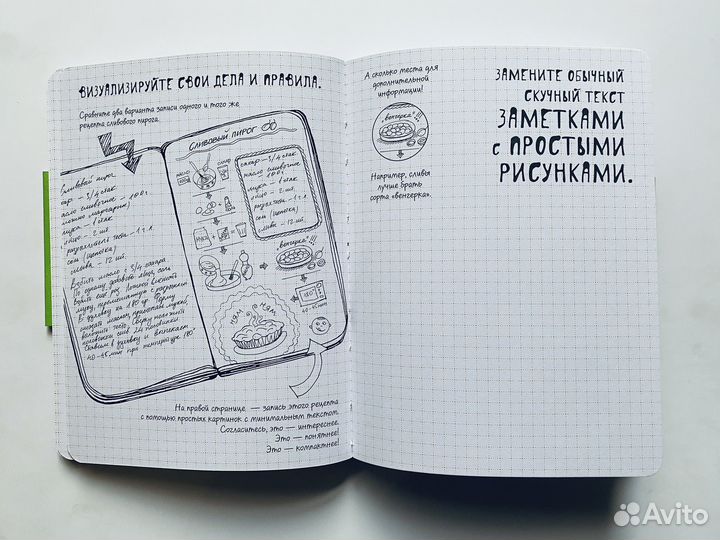 ВИЗУАЛИЗИРУЙТЕ СВОИ ДЕЛА И ПРАВИЛА.
Сравните два варианта записи одного и того же
рецепта сливового пирога.
Сливовый пирог
сахар – 3/4 стак
масло сливочное – 100 г
можно маргарин)
мука – 1 стак
яйцо – 2 шт
разрыхлитель теста – 1 ч. л.
соль (щепотка)
слива – 12 шт.
Взбить масло с 3/4 сахара
СЛИВОВЫЙ ПИРОГ
МАСЛО
САХАР
сахар – 3/4 стак
масло сливочное
– 100 г.
мука – 1 стак
яйцо – 2 шт.
разр. теста – 1 ч. л.
соль (щепотка)
слива – 12 шт.
МУКА
"венгерка" !!!
180°
40-45 мин
НЯМ
НЯМ
40-45 мин при температуре 180°
На правой странице — запись этого рецепта
с помощью простых картинок с минимальным текстом.
Согласитесь, это — интереснее.
Это — понятнее!
Это — компактнее!
А сколько места для
дополнительной
информации!
"венгерка" !!!
Например, сливы
лучше брать
сорта «венгерка».
ЗАМЕНИТЕ ОБЫЧНЫЙ
СКУЧНЫЙ ТЕКСТ
ЗАМЕТКАМИ
с ПРОСТЫМИ
РИСУНКАМИ.
Avito